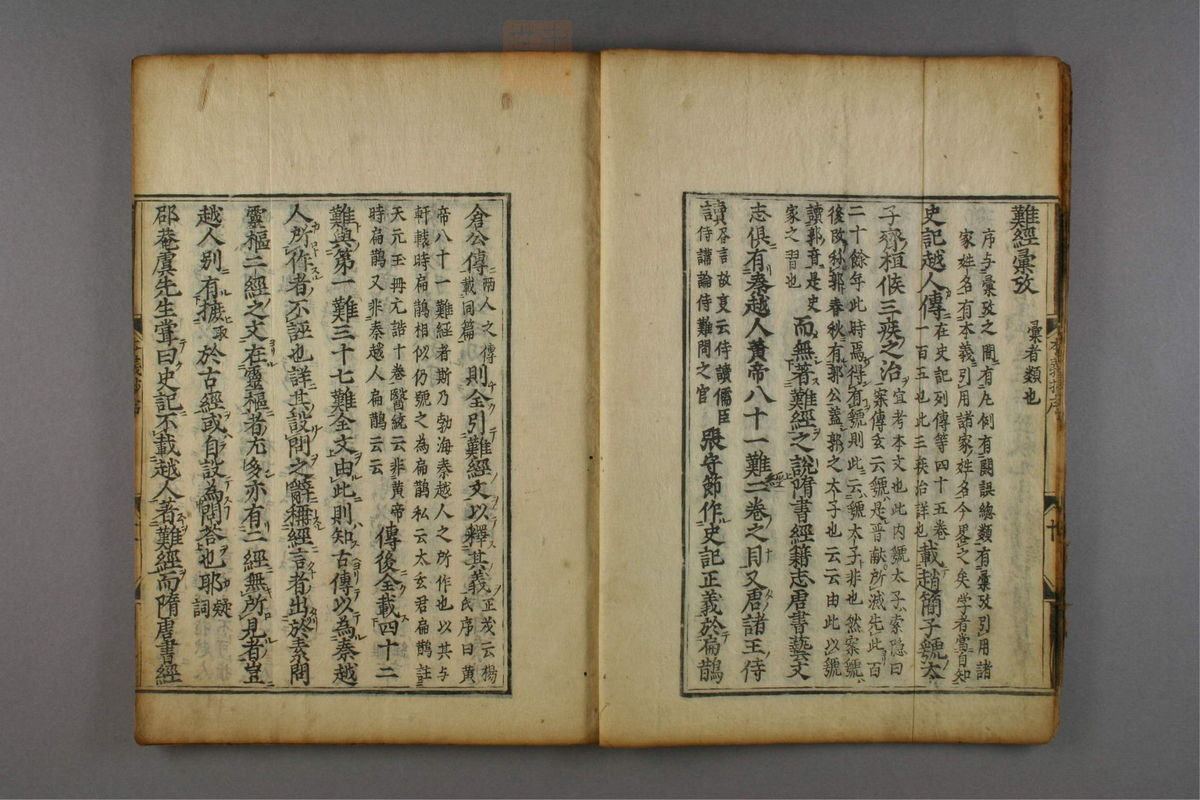 難經彙攷 彙者類也
序与彙攷之間有凡例有闕誤総類有彙攷引用諸
家姓名有本義引用諸家姓名今畧之矣学者當自知
史記越人傳 在史記列傳等四十五卷
一百五也此三疾治詳也 載趙簡子虢太
子齊桓侯三疾之治 宜考本文也此内虢太子索隠曰
案傳玄云虢是晋献所滅先此百
二十餘年此時焉得有虢則此云虢太子非也然案虢
後改称郭春秋有郭公蓋郭之太子也云云由此以虢
讀郭音是史
家之習也 而無著難經之說隋書經籍志唐書藝文
志俱有秦越人黄帝八十一難經二卷之目又唐諸王侍
讀 故叓云侍讀儒臣
侍講論侍難問之官 張守節作史記正義於扁鵲
倉公傳 兩人之傳
載同篇 則全引難經文以釋其義 正茂云楊
氏序曰黄
帝八十一難經者斯乃勃海秦越人之所作也以其与
軒轅時扁鵲相似仍號之為扁鵲私云太玄君扁鵲註
天元玉冊亢諧十卷醫統云非黄帝
時扁鵲又非秦越人扁鵲云云 傳後全載四十二
難與第一難三十七難全文由此則知古傳以為秦越
人所作者不誣也詳其設問之辭稱經言者出於素問
靈樞二經之文在靈樞者尤多亦有二經無所見者豈
越人别有摭 於古經或自設為問荅也耶 疑
詞
邵菴虞先生甞曰史記不載越人著難經而隋唐書經